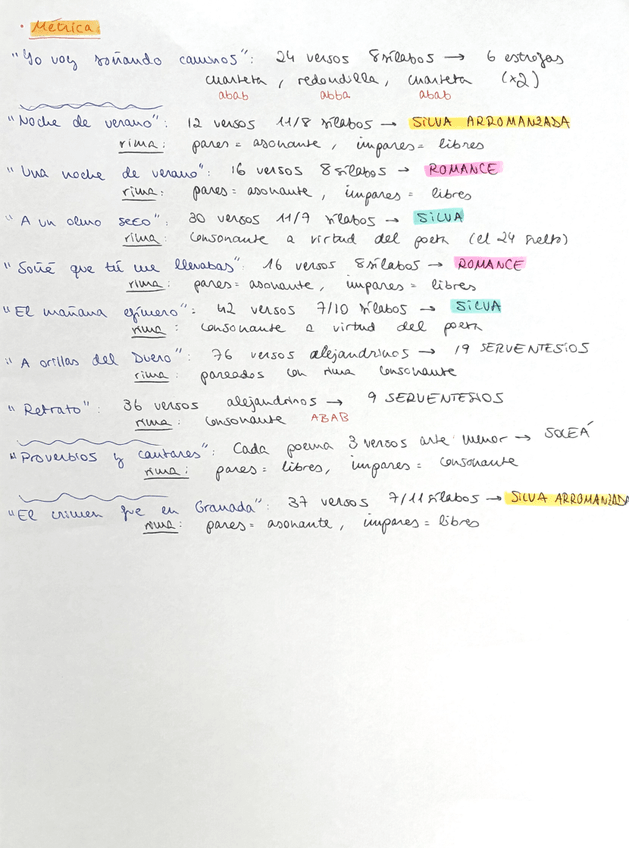 · Métrica
"Yo voy soñando caminos": 24 versos 8 sílabos → 6 estrofas
cuarteta, redondilla, cuarteta (x2)
abab abba abab
"Noche de verano": 12 versos 11/8 sílabos → SILVA ARROMANZADA
rima: pares = asonante, impares = libres
"Una noche de verano": 16 versos 8 sílabos → ROMANCE
rima: pares = asonante, impares = libres
"A un olmo seco": 30 versos 11/7 sílabos → SILVA
rima: consonante a virtud del poeta (el 24 suelto)
"Soñé que tú me llevabas": 16 versos 8 sílabos → ROMANCE
rima: pares = asonante, impares = libres
"El mañana efímero": 42 versos 7/10 sílabos → SILVA
rima: consonante a virtud del poeta
"A orillas del Duero": 76 versos alejandrinos → 19 SERVENTESIOS
rima: pareados con rima consonante
"Retrato": 36 versos alejandrinos → 9 SERVENTESIOS
rima: consonante ABAB
"Proverbios y cantares": Cada poema 3 versos arte menor → SOLEÁ
rima: pares = libres, impares = consonante
"El crimen fue en Granada": 37 versos 7/11 sílabos → SILVA ARROMANZADA
rima: pares = asonante, impares = libres